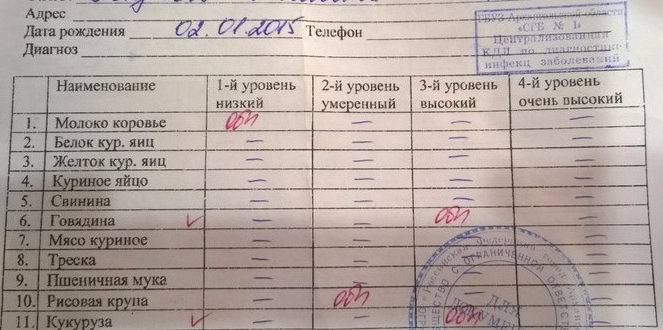 Адрес
Дата рождения 02.01.2015 Телефон
Диагноз
ГБУЗ Архангельской области
«СГБ № 1»
Централизованная
КДЛ по диагностике
инфекц заболеваний
Наименование 1-й уровень низкий 2-й уровень умеренный 3-й уровень высокий 4-й уровень очень высокий
1. Молоко коровье обн — — —
2. Белок кур. яиц — — — —
3. Желток кур. яиц — — — —
4. Куриное яйцо — — — —
5. Свинина — — — —
6. Говядина ✓ — — обн —
7. Мясо куриное — — — —
8. Треска — — — —
9. Пшеничная мука — — — —
10. Рисовая крупа — обн — —
11. Кукуруза ✓ — — обн —
Российская Федерация
ОБЩЕСТВО С ОГРАНИЧЕННОЙ
ДЛЯ